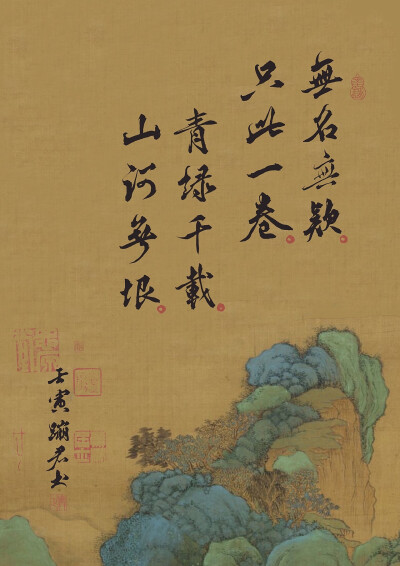 無名無款
只此一卷
青綠千載
山河無垠
壬寅蹦君书